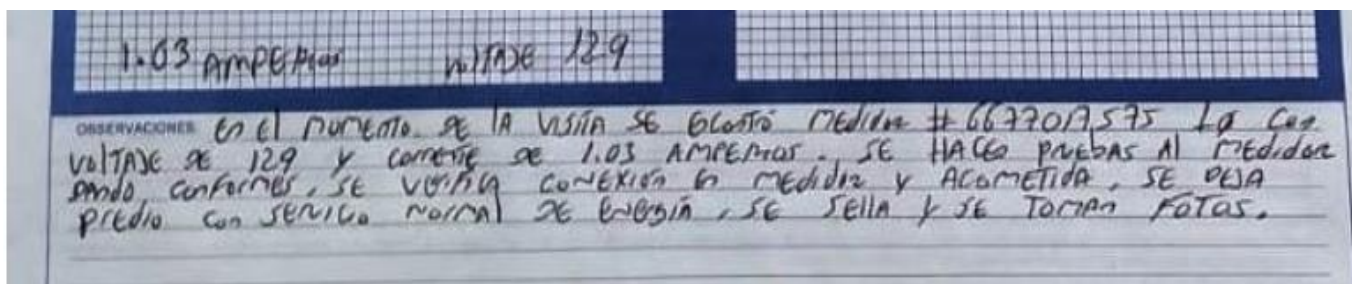 1.03 AMPERIOS VOLTAJE 129
OBSERVACIONES En el momento de la visita se econtró medidor # La Con
voltaje de 129 y corriente de 1.03 AMPERIOS. SE HACEN PRUEBAS Al MEDIDOR
DANDO conformes, se verifica conexión en medidor y ACOMETIDA, SE DEJA
predio con servico normal de energía, se sella y se toman FOTOS.